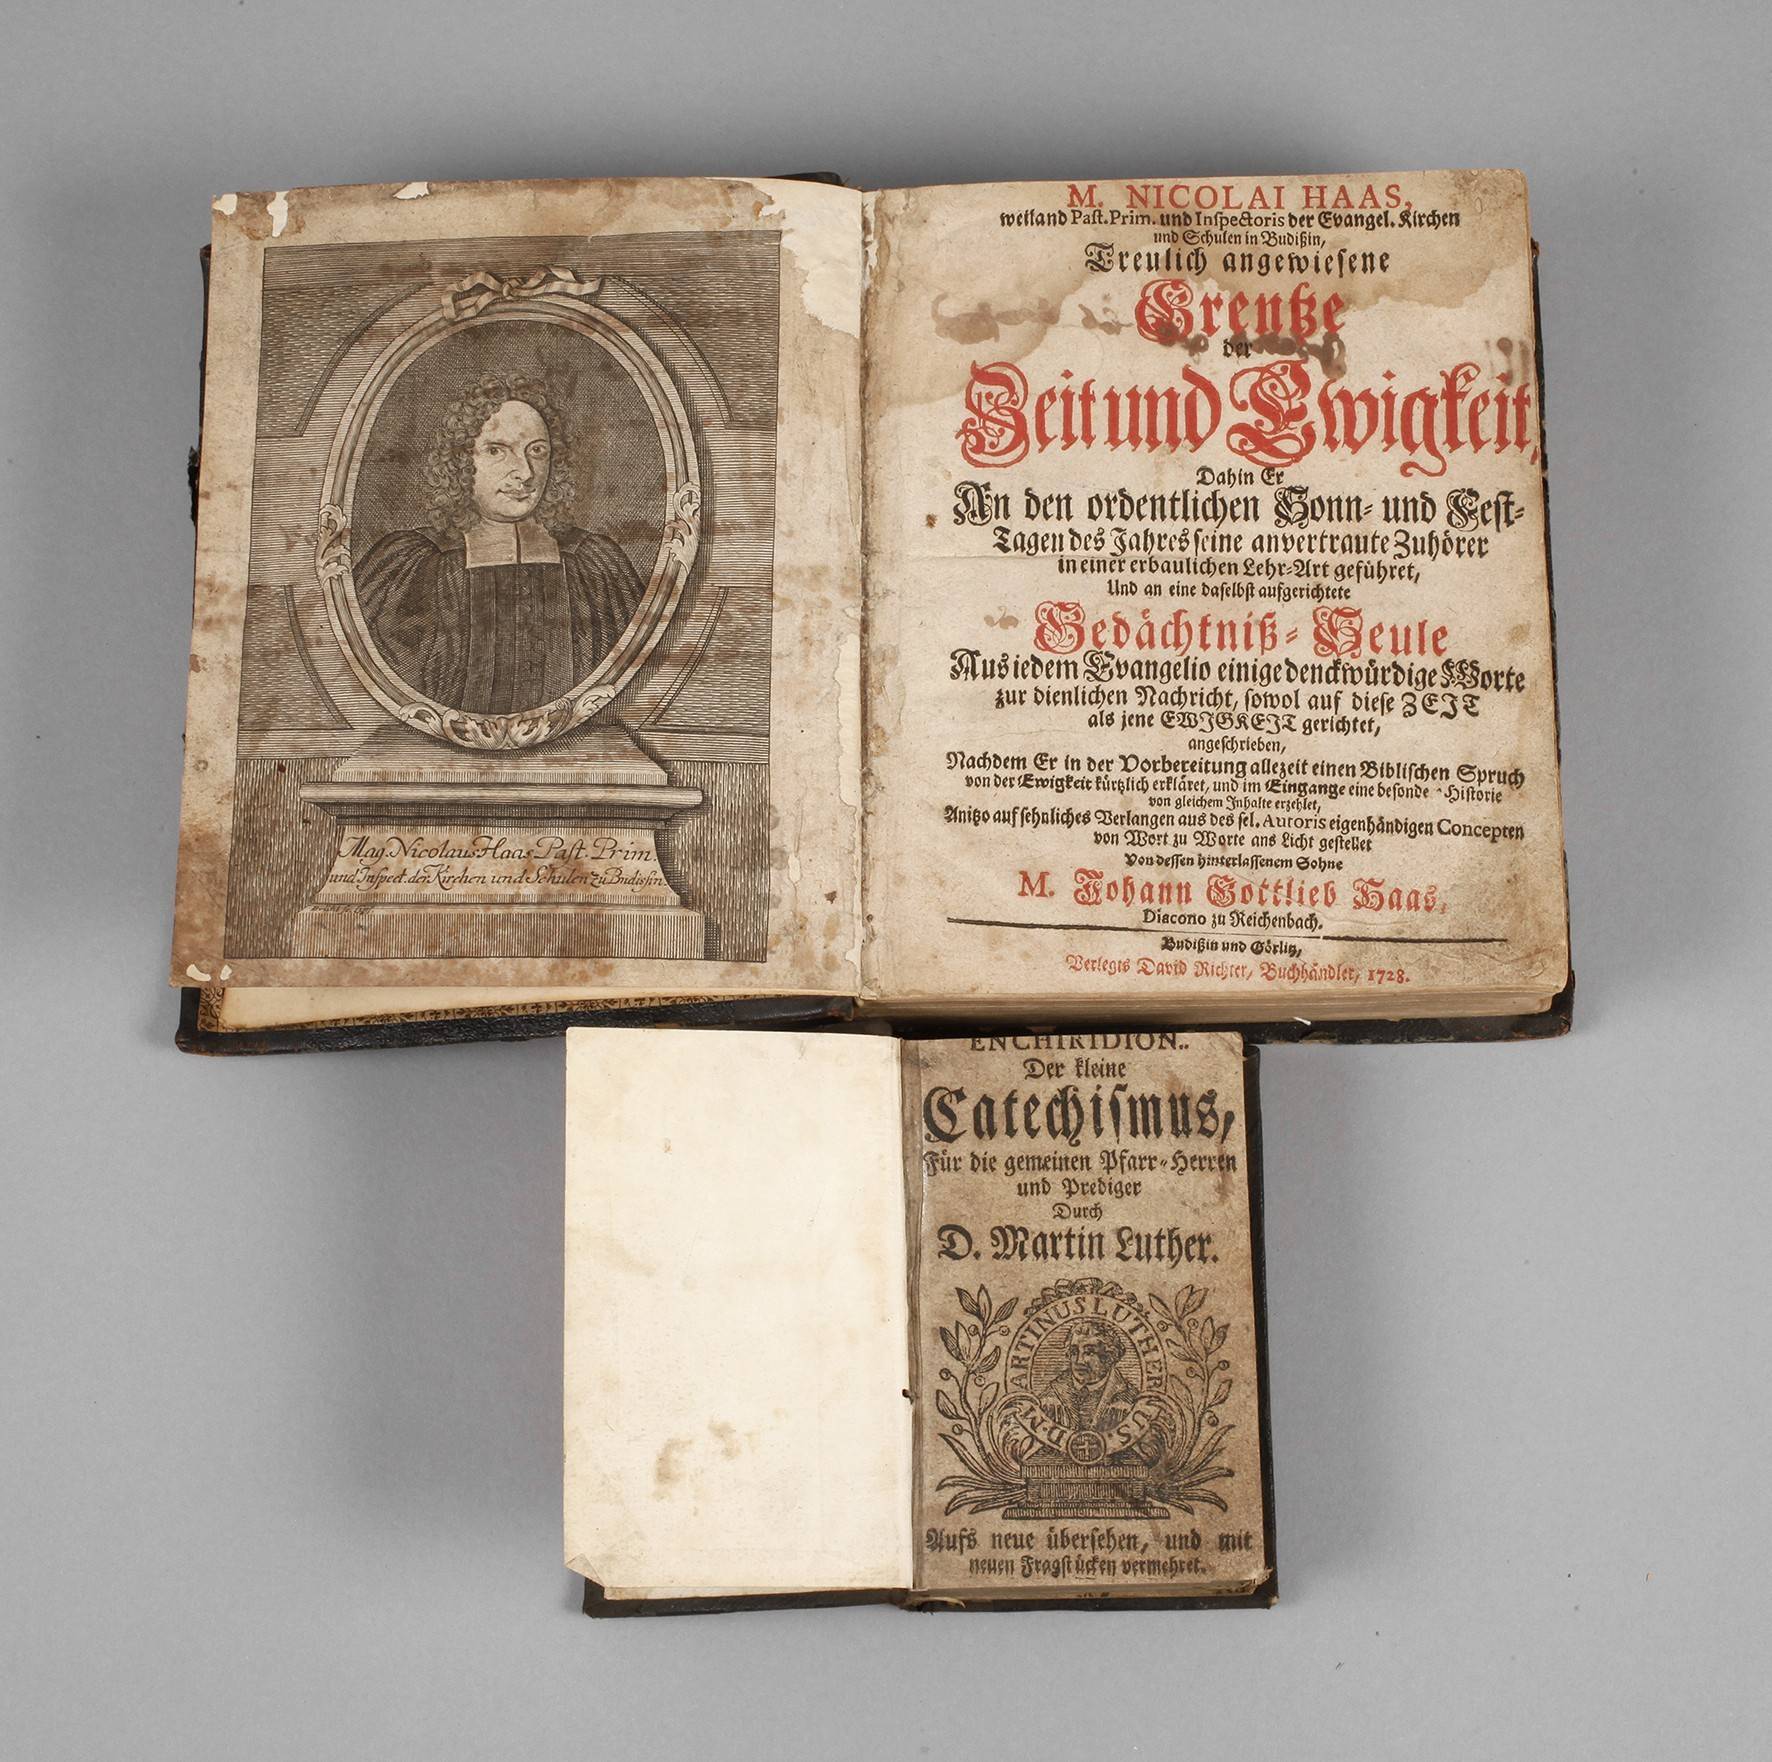 Mag. Nicolaus Haas Past. Prim.
und Inspect. der Kirchen und Schulen zu Budissin.
M. NICOLAI HAAS,
weiland Past. Prim. und Inspectoris der Evangel. Kirchen
und Schulen in Budißin,
Treulich angewiesene
Grentze
der
Zeit und Ewigkeit,
Dahin Er
An den ordentlichen Sonn- und Fest-
Tagen des Jahres seine anvertraute Zuhörer
in einer erbaulichen Lehr-Art geführet,
Und an eine daselbst aufgerichtete
Gedächtniß-Seule
Aus iedem Evangelio einige denckwürdige Worte
zur dienlichen Nachricht, sowol auf diese ZEIT
als jene EWIGKEIT gerichtet,
angeschrieben,
Nachdem Er in der Vorbereitung allezeit einen Biblischen Spruch
von der Ewigkeit kürtzlich erkläret, und im Eingange eine besonde Historie
von gleichem Inhalte erzehlet,
Anitzo auf sehnliches Verlangen aus des sel. Autoris eigenhändigen Concepten
von Wort zu Worte ans Licht gestellet
Von dessen hinterlassenem Sohne
M. Johann Gottlieb Haas,
Diacono zu Reichenbach.
Budißin und Görlitz,
Verlegts David Richter, Buchhändler, 1728.
ENCHIRIDION.
Der kleine
Catechismus,
Für die gemeinen Pfarr-Herren
und Prediger
Durch
D. Martin Luther.
D. MARTINUS LUTHERUS.
Aufs neue übersehen, und mit
neuen Fragstücken vermehret.